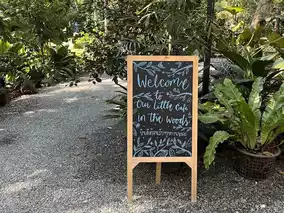 Welcome
to
Our little cafe
in the woods